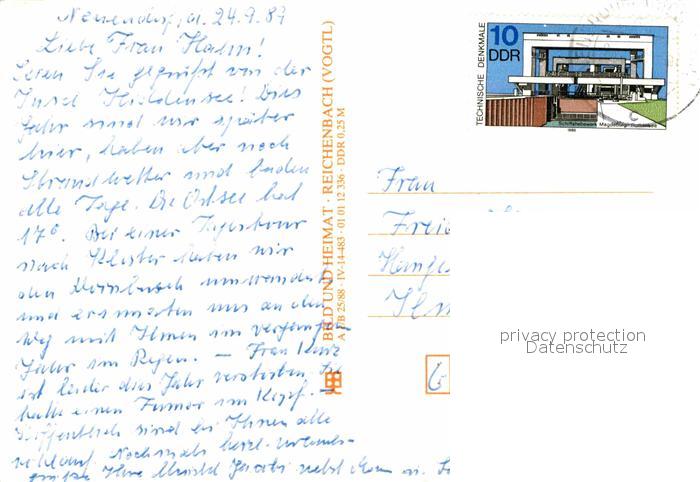 Neuendorf, d. 24.9.89
Liebe Frau Hahn!
Seien Sie gegrüßt von der
Insel Hiddensee! Dies
Jahr sind wir später
hier, haben aber noch
Strandwetter und baden
alle Tage. Die Ostsee hat
17°. Bei einer Tagestour
nach Kloster haben wir
den Dornbusch umwandert
und erinnerten uns an den
Weg mit Ihnen im vergangen
Jahr im Regen. — Frau Kunz
ist leider dies Jahr verstorben. Sie
hatte einen Tumor im Kopf.
Hoffentlich sind bei Ihnen alle
wohlauf. Nochmals herzl. Urlaubs-
grüße Ihre Christel Jacobi nebst Mann u.
BILD UND HEIMAT · REICHENBACH (VOGTL)
A 1/B 25/88 · IV-14-483 · 01 01 12 336 · DDR 0,25 M
TECHNISCHE DENKMALE
10
DDR
Schiffshebewerk Magdeburg-Rothensee
1988
Frau
privacy protection
Datenschutz